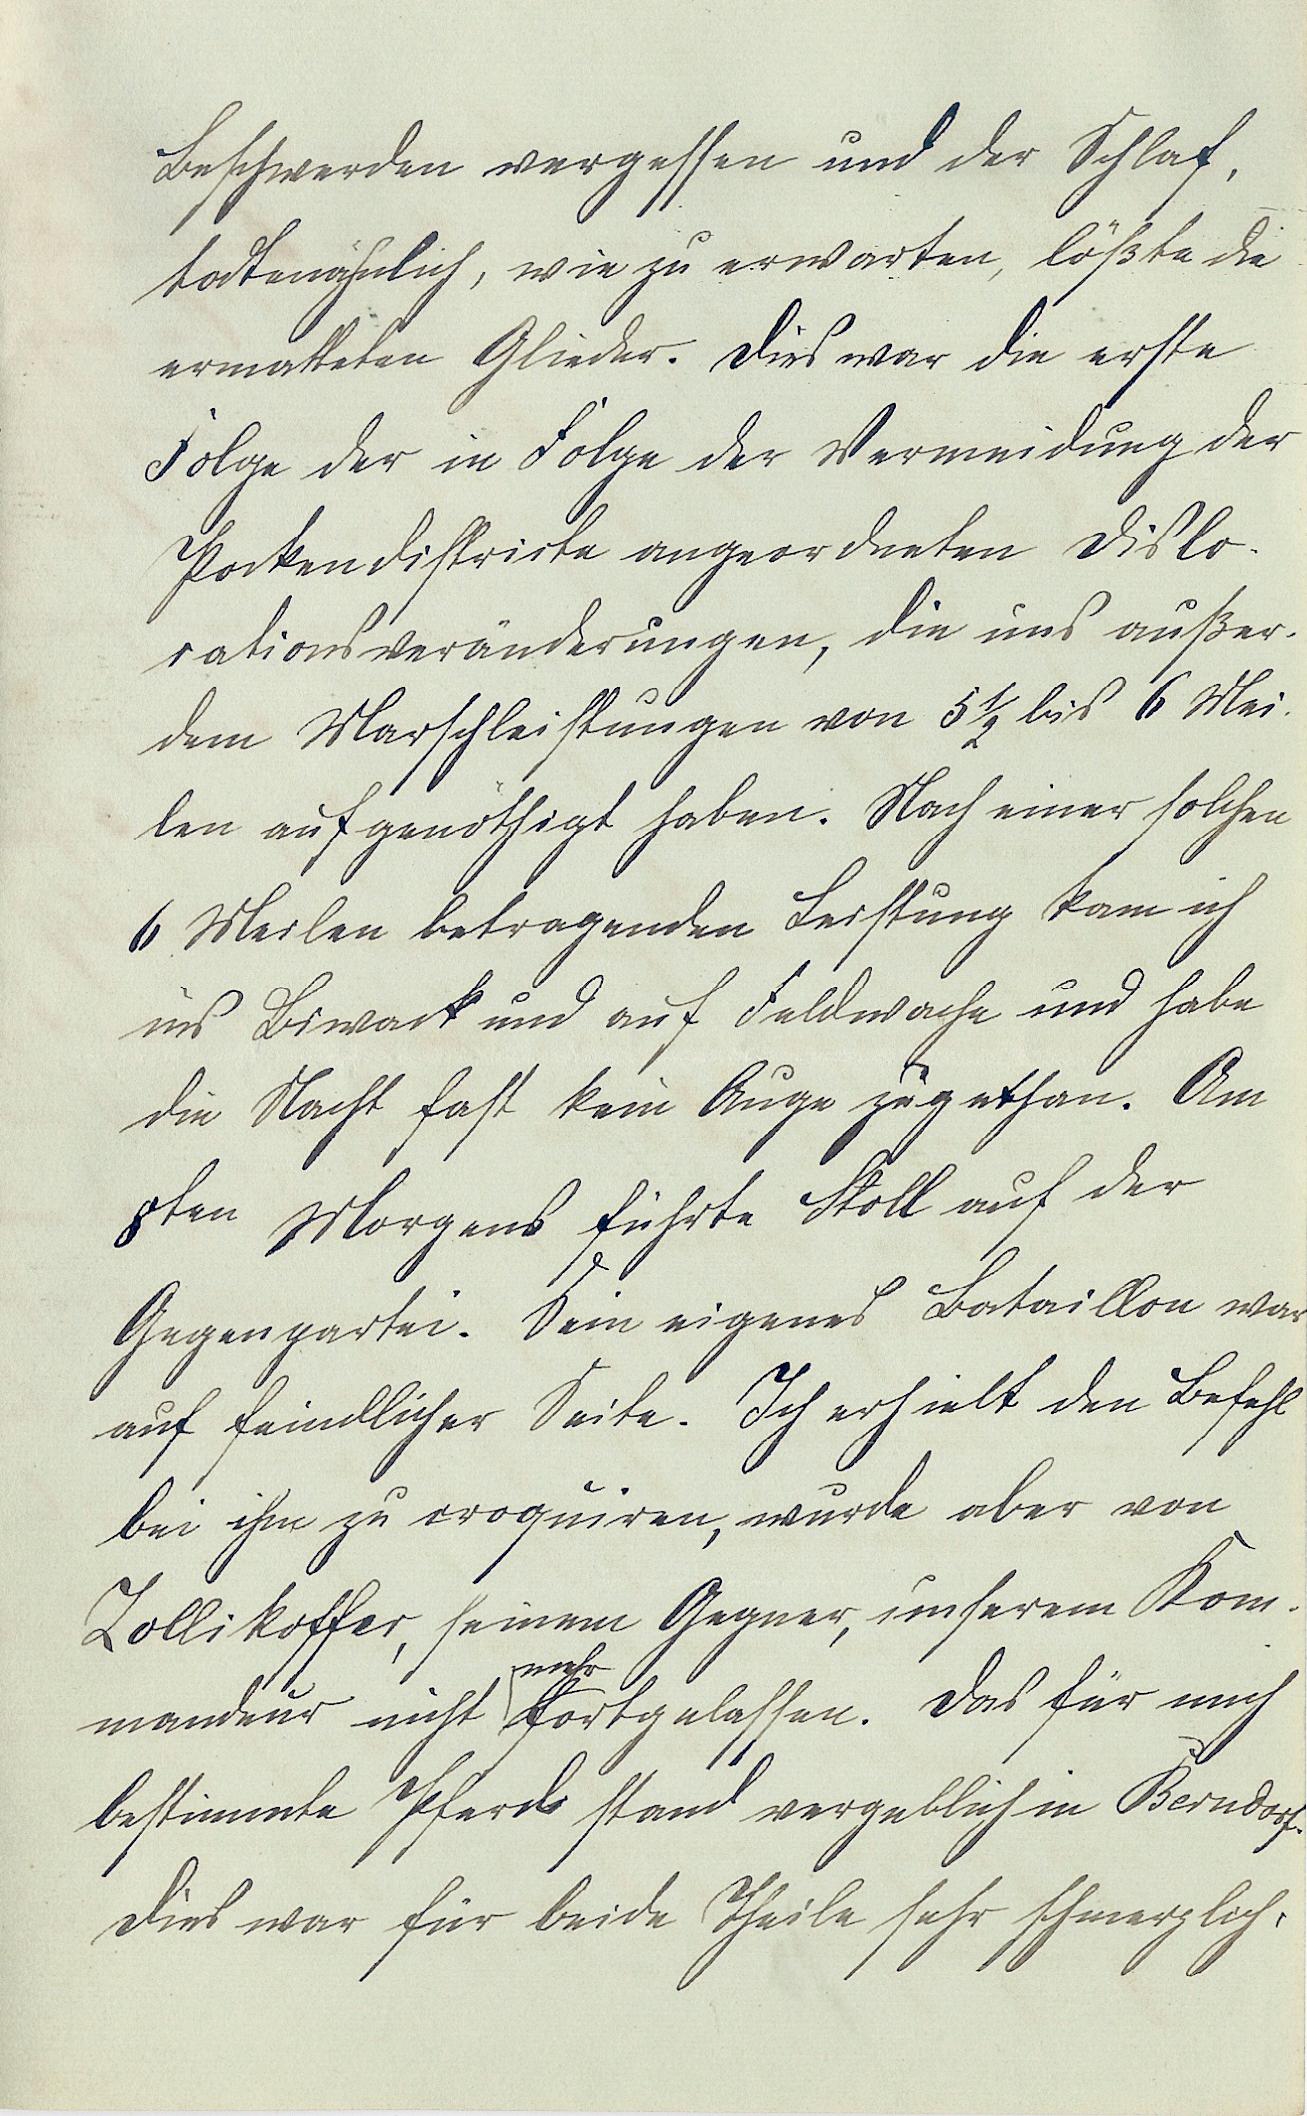 Beschwerden vergessen und der Schlaf,
todtenähnlich, wie zu erwarten, lößte die
ermatteten Glieder. Dies war die erste
Folge der in Folge der Vermeidung der
Pockendistricte angeordneten Dislo-
cationsveränderungen, die uns außer-
dem Marschleistungen von 5½ bis 6 Mei-
len aufgenöthigt haben. Nach einer solchen
6 Meilen betragenden Leistung kam ich
ins Biwack und auf Feldwache und habe
die Nacht fast kein Auge zugethan. Am
8ten Morgens führte Stoll auf der
Gegenpartei. Sein eigenes Bataillon war
auf feindlicher Seite. Ich erhielt den Befehl
bei ihm zu croquiren, wurde aber von
Zollikoffer, seinem Gegner, unserem Kom-
mandeur nicht mehr fortgelassen. Das für mich
bestimmte Pferd stand vergeblich in Berndorf.
Dies war für beide Theile sehr schmerzlich.